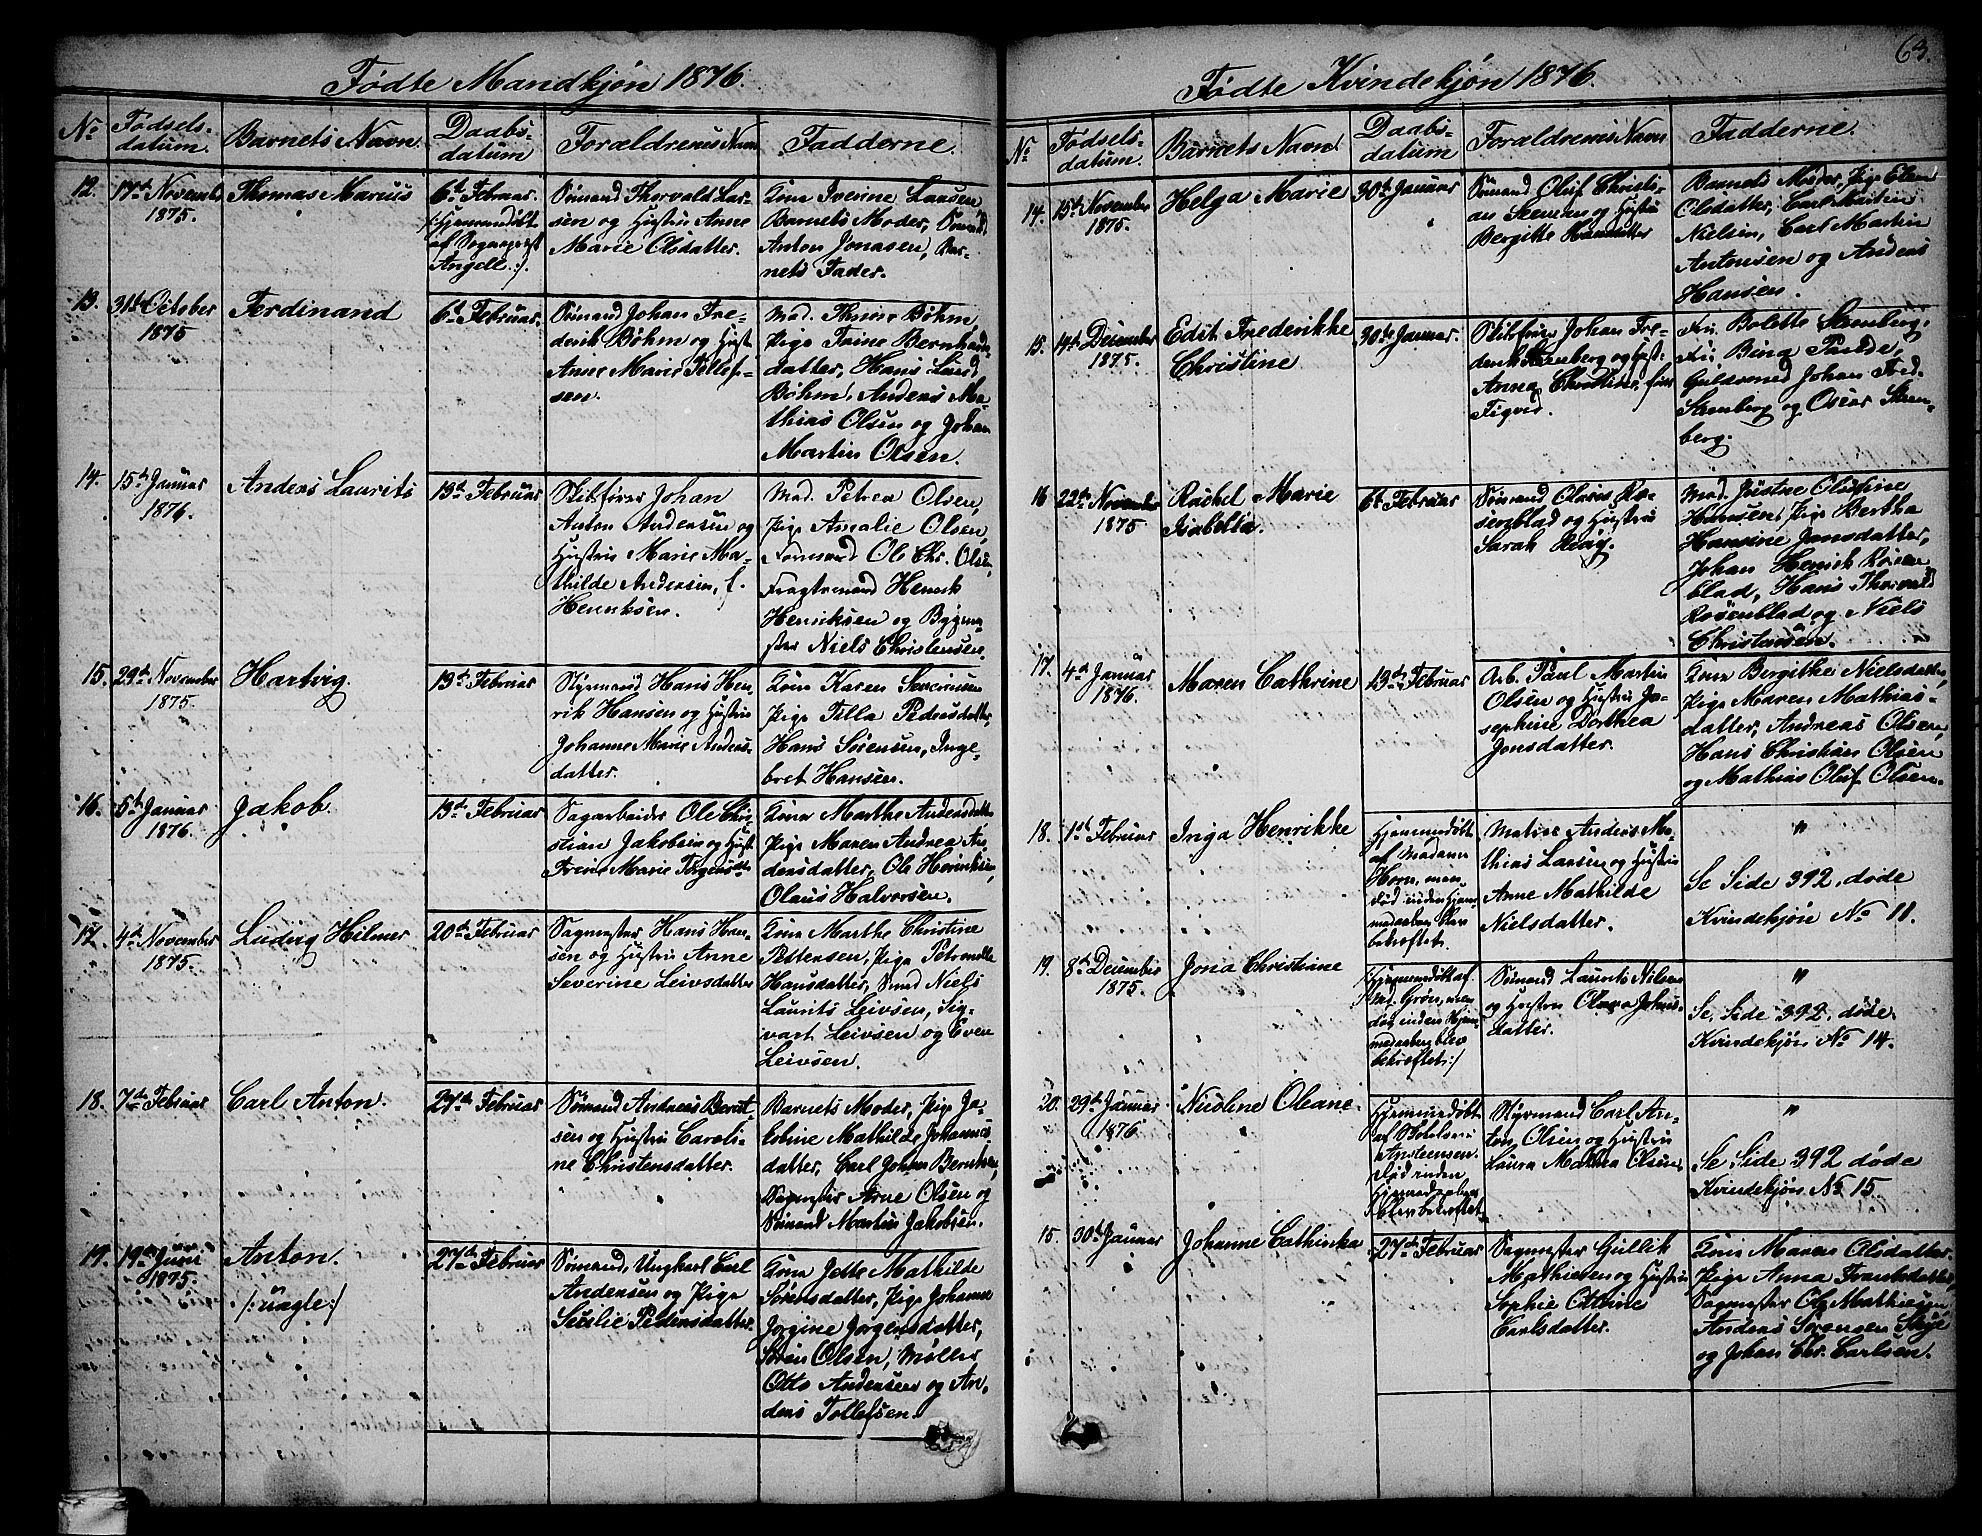 Fødte Mandkjøn 1876.
No
Fødsels-
datum.
Barnets Navn.
Daabs-
datum
Forældrenes Navn
Fadderne.
12.
17de Novemb.
1875.
Thomas Marius
6te Februar.
/:hjemmedøbt
af Sogneprest
Angell:/.
Sømand Thorvald Lar-
sen og Hustru Anne
Marie Olsdatter.
Kone Iverine Larsen
Barnets Moder, Sømand
Anton Jonasen, Bar-
nets Fader.
13.
31te October
1875
Ferdinand
6te Februar.
Sømand Johan Fre-
derik Bøhm og Hustr.
Anne Marie Tellef-
sen.
Mad. Thrine Bøhm
Pige Trine Bernhards-
datter, Hans Laurs
Bøhm, Anders Ma-
thias Olsen og Johan
Martin Olsen.
14.
15de Januar
1876.
Anders Laurits
13de Februar
Skibsfører Johan
Anton Andersen og
Hustru Marie Ma-
thilde Andersen, f.
Henriksen.
Mad. Petrea Olsen,
Pige Amalie Olsen,
Formand Ole Chr. Olsen,
Fragtemand Henrik
Henriksen og Bygme-
ster Niels Christensen.
15.
29de November
1875.
Hartvig.
13de Februar
Styrmand Hans Hen-
rik Hansen og Hustru
Johanne Marie Anders-
datter.
Kone Karen Severinsen
Pige Tilla Pedersdatter,
Hans Sørensen, Inge-
bret Hansen.
16.
5te Januar
1876.
Jakob.
13de Februar
Sagarbeider Ole Chri-
stian Jakobsen og Hustr.
Trine Marie Jørgensdtr.
Kone Marthe Andersdatter
Pige Maren Andrea An-
dersdatter, Ole Henriksen,
Olaus Halvorsen.
17.
4de November
1875.
Ludvig Hilmer
20de Februar
Sagmester Hans Han-
sen og Hustru Anne
Severine Leivsdatter
Kone Marthe Christine
Pettersen, Pige Petronelle
Hansdatter, Smed Niels
Laurits Leivsen, Sig-
vart Leivsen og Even
Leivsen.
18.
7de Februar
Carl Anton.
27de Februar
Sømand Andreas Bernt-
sen og Hustru Caroli-
ne Christensdatter.
Barnets Moder, Pige Ja-
kobine Mathilde Johannes-
datter, Carl Johan Berntsen,
Sagmester Arne Olsen og
Sømand Martin Jakobsen.
19.
19de Juni
1875.
Anton.
/:uægte:/
27de Februar
Sømand, Ungkarl Carl
Andersen og Pige
Secilie Pedersdatter.
Kone Jette Mathilde
Sørensdatter, Pige Johanne
Jørgine Jørgensdatter,
Søren Olsen, Møller
Otto Andersen og An-
ders Tollefsen.
63.
Fødte Kvindekjøn 1876.
No
Fødsels-
datum.
Barnets Navn
Daabs-
datum
Forældrenes Navn
Fadderne.
14.
15de November
1875.
Helga Marie
30te Januar
Sømand Oluf Christi-
an Steensen og Hustru
Bergitte Hansdatter
Barnets Moder, Pige Elen
Olsdatter, Carl Martin
Nielsen, Carl Martin
Antonsen og Anders
Hansen.
15.
14de December
1875.
Edit Frederikke
Christine
30te Januar.
Skibsfører Johan Fre-
derik Stenberg og Hust:
Anna Christine, født
Figved.
Fru Bolette Stenberg,
Fru Bina Paulde,
Guldsmed Johan Fred.
Stenberg og Oscar Sten-
berg.
16
22de November
1875
Rachel Marie
Isabella.
6te Februar
Sømand Olaves Ro-
senblad og Hustru
Sarah Høeg.
Mad. Justine Oluffine
Hansen, Pige Bertha
Hansine Jonsdatter,
Johan Henrik Rosen-
blad, Hans Thorvald
Rosenblad og Niels
Christensen.
17.
4de Januar
1876.
Maren Cathrine
13de Februar
Arb. Paul Martin
Olsen og Hustru Jo-
sephine Dorthea
Jonsdatter.
Kone Bergitte Nielsdatter,
Pige Maren Mathias-
datter, Andreas Olsen,
Hans Christian Olsen
og Mathias Oluf Olsen.
18.
1ste Februar
Inga Henrikke
Hjemmedøbt
af Madame
Horn, men
død inden Hjem-
medaaben blev
bekræftet.
Matros Anders Ma-
thias Larsen og Hustru
Anne Mathilde
Nielsdatter.
"
Se Side 392, døde
Kvindekjøn No 11.
19.
8de December
1875.
Jona Christiane
/:Hjemmedøbt af
Md. Grøn, men
død inden Hjem-
medaaben blev
bekræftet:/
Sømand Laurits Nilsen
og Hustru Olava Johns-
datter.
"
Se Side 392, døde
Kvindekjøn No 14.
20.
29de Januar
1876
Nicoline Oleane.
Hjemmedøbt
af
Anstensen.
Død inden
Hjemmedaaben
blev bekræftet.
Styrmand Carl An-
ton Olsen og Hustru
Laura Mathea Olsen
"
Se Side 392 døde
Kvindekjøn No 15.
15.
30te Januar
Johanne Cathinka
27de Februar
Sagmester Gullik
Mathiesen og Hustru
Sophie Cathrine
Carlsdatter.
Kone Maren Olsdatter
Pige Anna Frantsdatter,
Sagmester Ole Mathiesen,
Anders Sørensen Skye
og Johan Chr. Carlsen.